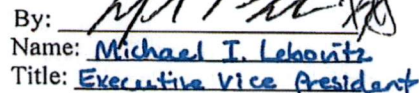 By:
Name: Michael I. Lebovitz
Title: Executive Vice President